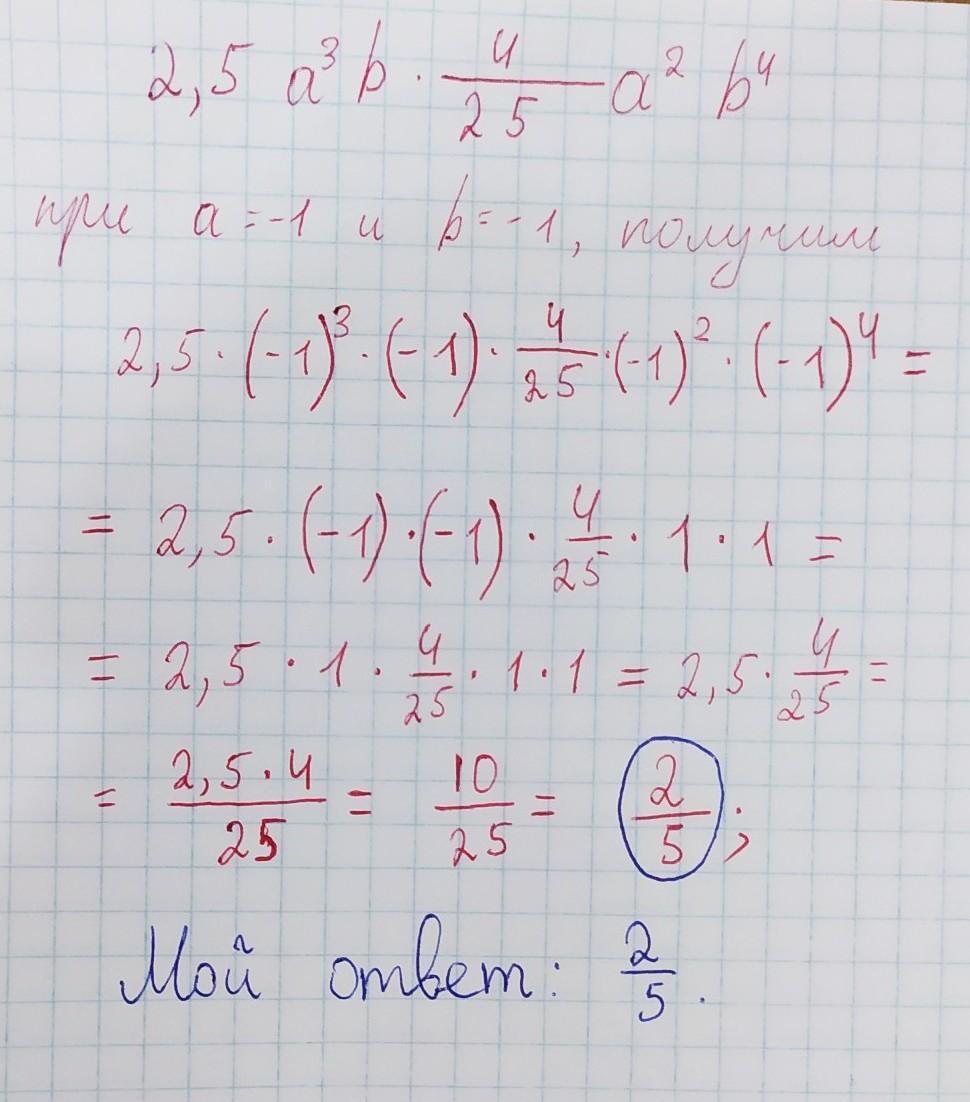 2,5 a³ b · 4/25 a² b⁴
при a = -1 и b = -1, получим
2,5 · (-1)³ · (-1) · 4/25 · (-1)² · (-1)⁴ =
= 2,5 · (-1) · (-1) · 4/25 · 1 · 1 =
= 2,5 · 1 · 4/25 · 1 · 1 = 2,5 · 4/25 =
= 2,5 · 4/25 = 10/25 = 2/5 ;
Мой ответ: 2/5.